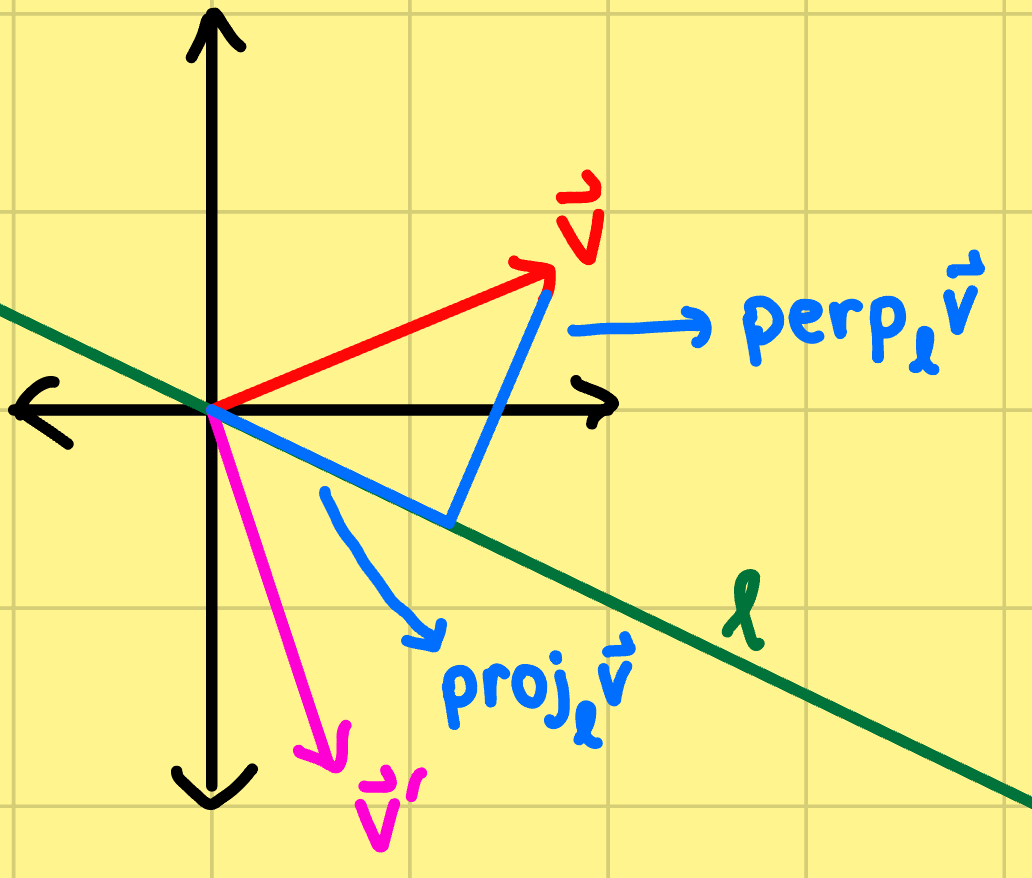 v⃗
perpₗ v⃗
ℓ
projₗ v⃗
v⃗′